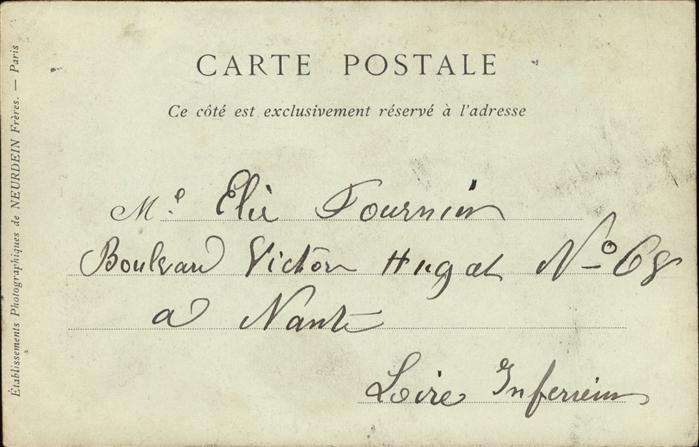 CARTE POSTALE
Ce côté est exclusivement réservé à l'adresse
Mr Elie Fournier
Boulevard Victor Hugot No 68
à Nante
Loire Inferrieur
Établissements Photographiques de NEURDEIN Frères. — Paris